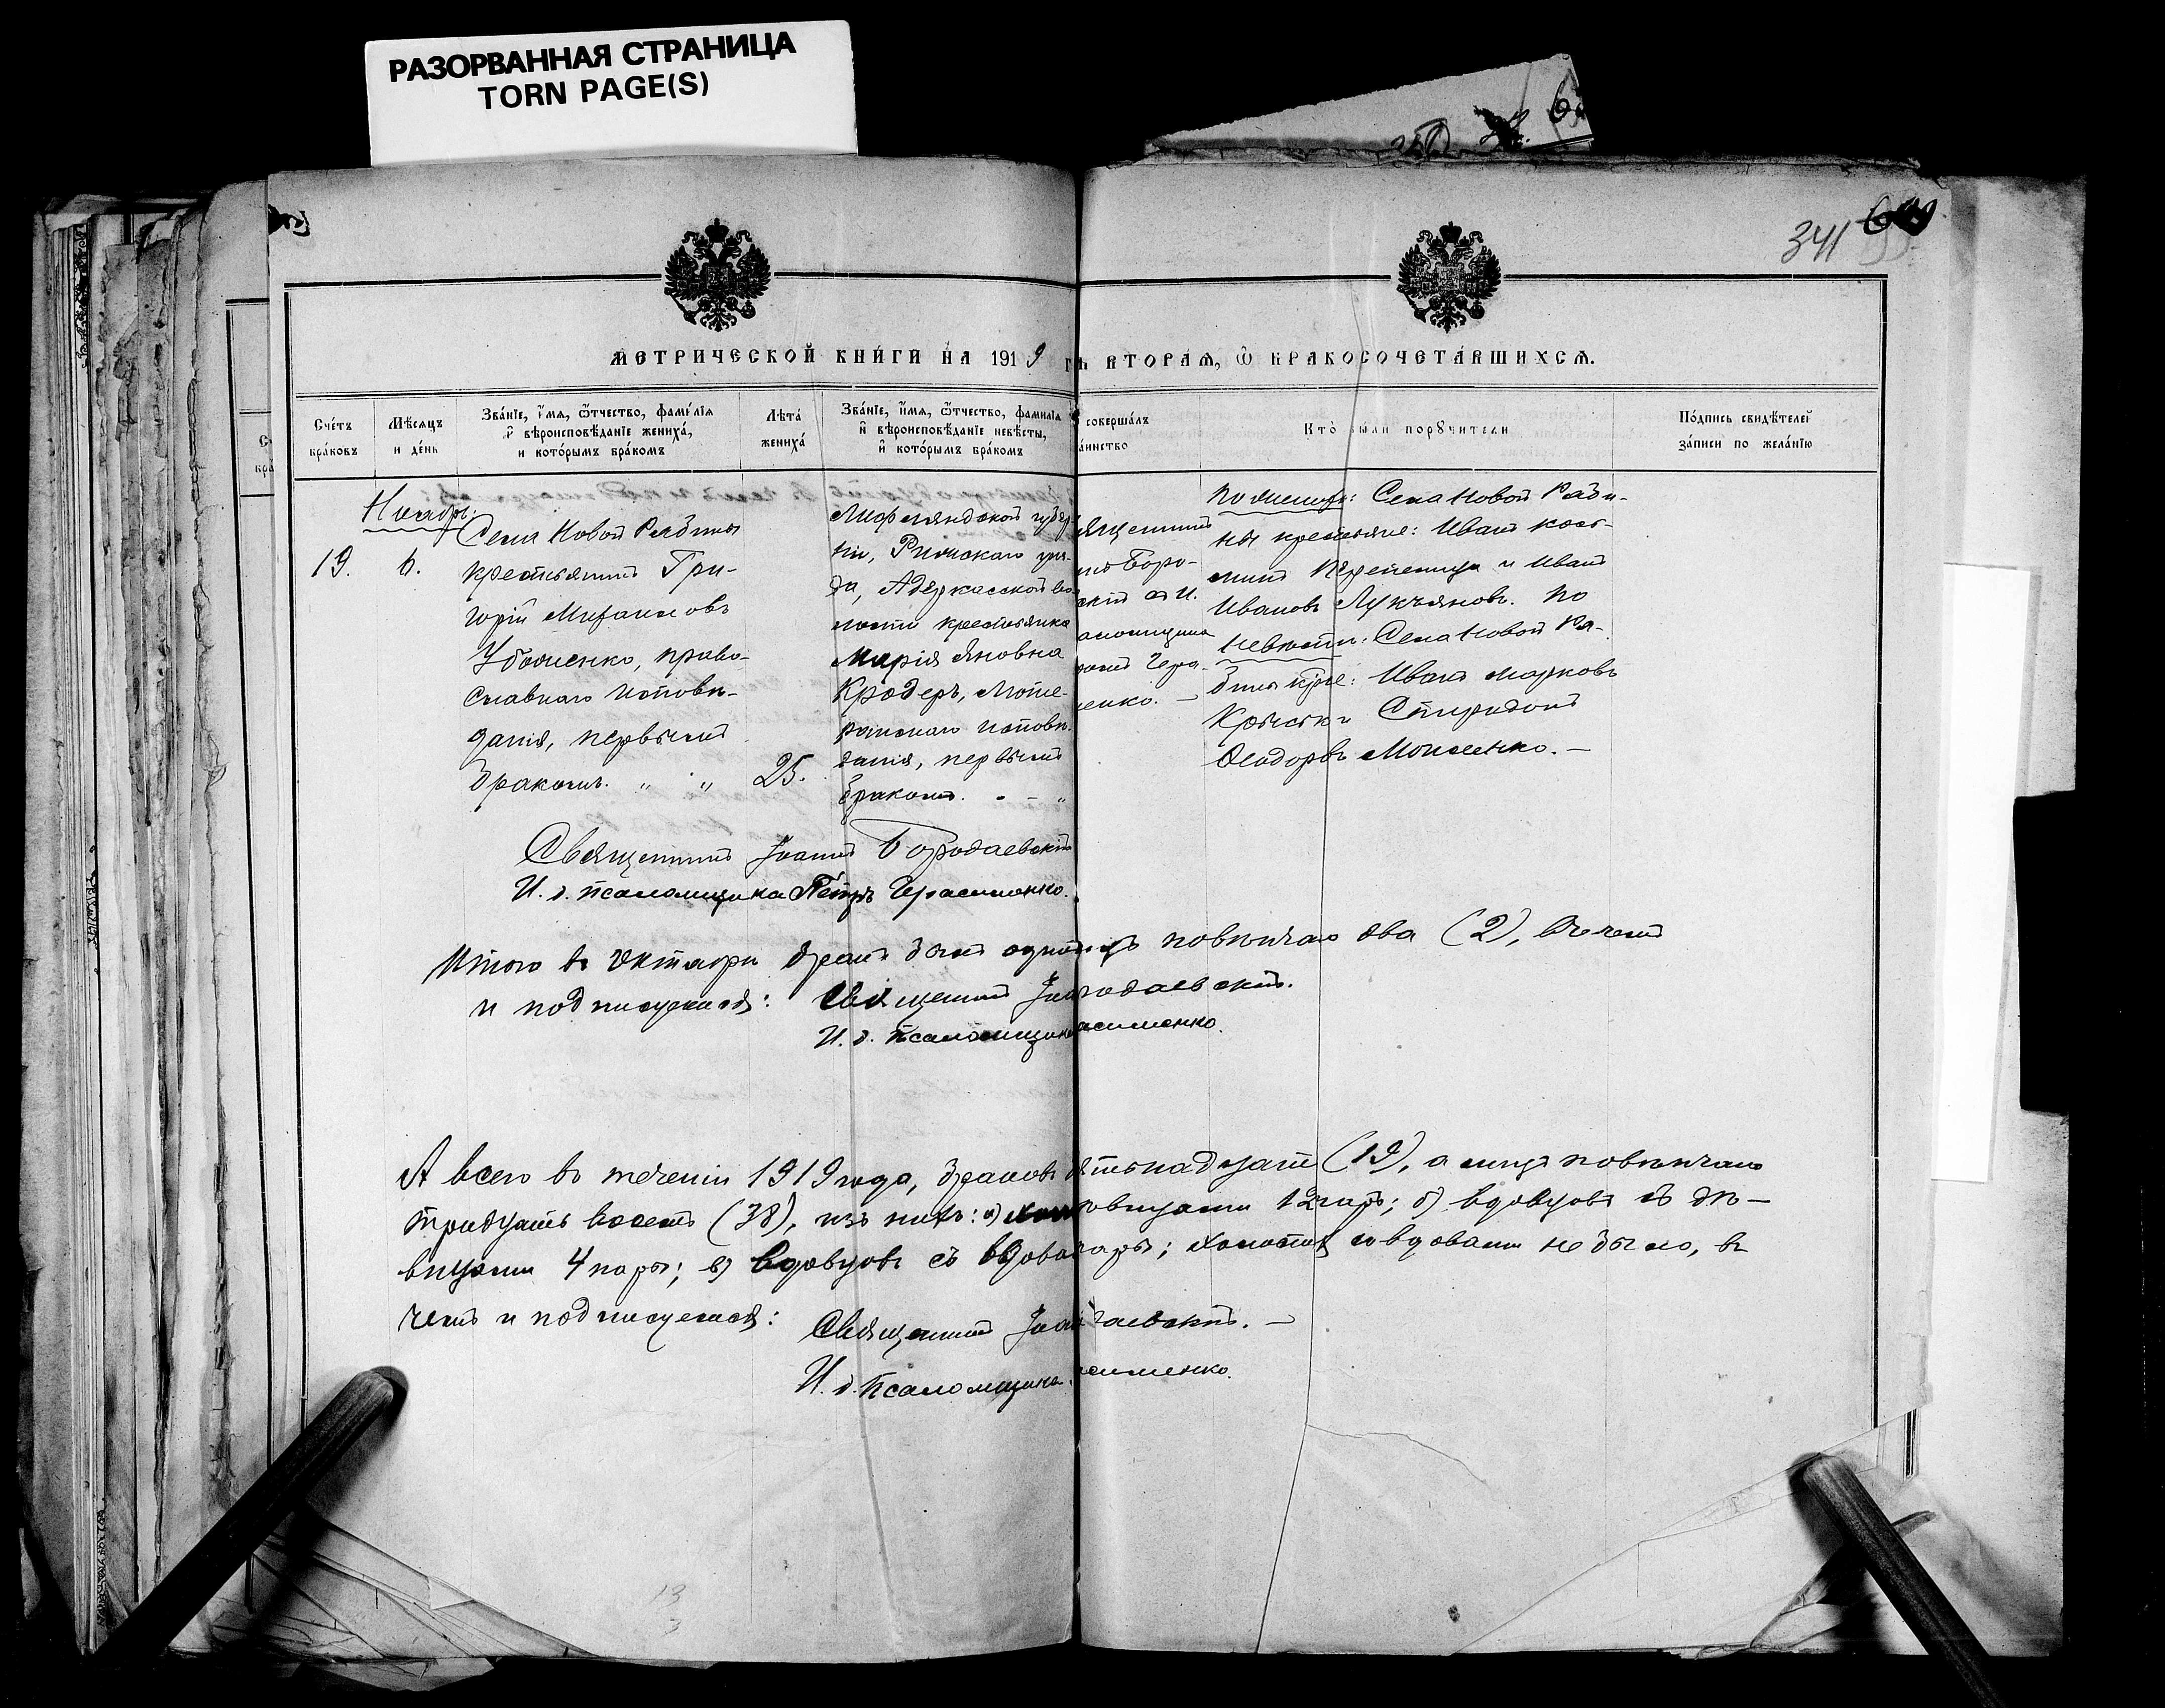 РАЗОРВАННАЯ СТРАНИЦА
TORN PAGE(S)
341
МЕТРИЧЕСКОЙ КНИГИ НА 1919 Г ВТОРАѦ, Ѿ БРАКОСОЧЕТАВШИХСѦ.
Счетъ браковъ
Мѣсяцъ и день
Званіе, имя, ѿтчество, фамилія
и вѣроисповѣданіе жениха,
и которымъ бракомъ
Лѣта жениха
Званіе, имя, ѿтчество, фамилія
и вѣроисповѣданіе невѣсты,
и которымъ бракомъ
совершалъ
аинство
Кто были порꙋчители
Подпись свидѣтелей
записи по желанію
Ноябрь
19.
6.
Села Новой Рябины
крестьянинъ Гри-
горій Михаиловъ
Убоженко, право-
славнаго исповѣ-
данія, первымъ
бракомъ. „ „
25.
Лифляндской губер-
ніи, Рижскаго уѣз-
да, Адеркасской во-
лости крестьянка
Марія Яновна
Кродеръ, Люте-
ранскаго исповѣ-
данія, первымъ
бракомъ.
ященникъ
Боро-
скій и И.
аломщика
Гера-
енко. —
По женихѣ: Села Новой Ряби-
ны крестьяне: Иванъ Кось-
минъ Перепелица и Иванъ
Ивановъ Лукъяновъ. По
невѣстѣ: Села Новой Ря-
бины кр-не: Иванъ Марковъ
и Спиридонъ
Ѳеодоровъ Моисенко. —
Священникъ Іоаннъ Бородаевскій
И. д. псаломщика Петръ Герасименко.
Итого въ Октябрѣ бракъ былъ одинъ повѣнчано два (2), въ чемъ
и подписуемся: Священникъ Іоа родаевскій.
И. д. Псаломщика асименко.
А всего въ теченіи 1919 года, браковъ ятьнадцать (19), а лицъ повѣнчано
тридцать восемь (38), изъ нихъ: а) овицами 12 паръ; б) вдовцовъ съ дѣ-
вицами 4 пары; в) вдовцовъ съ вдова пары; холостых со вдовами не было, въ
чемъ и подписуемся:
Священникъ Іоан аевскій. —
И. д. Псаломщика сименко.
13
3